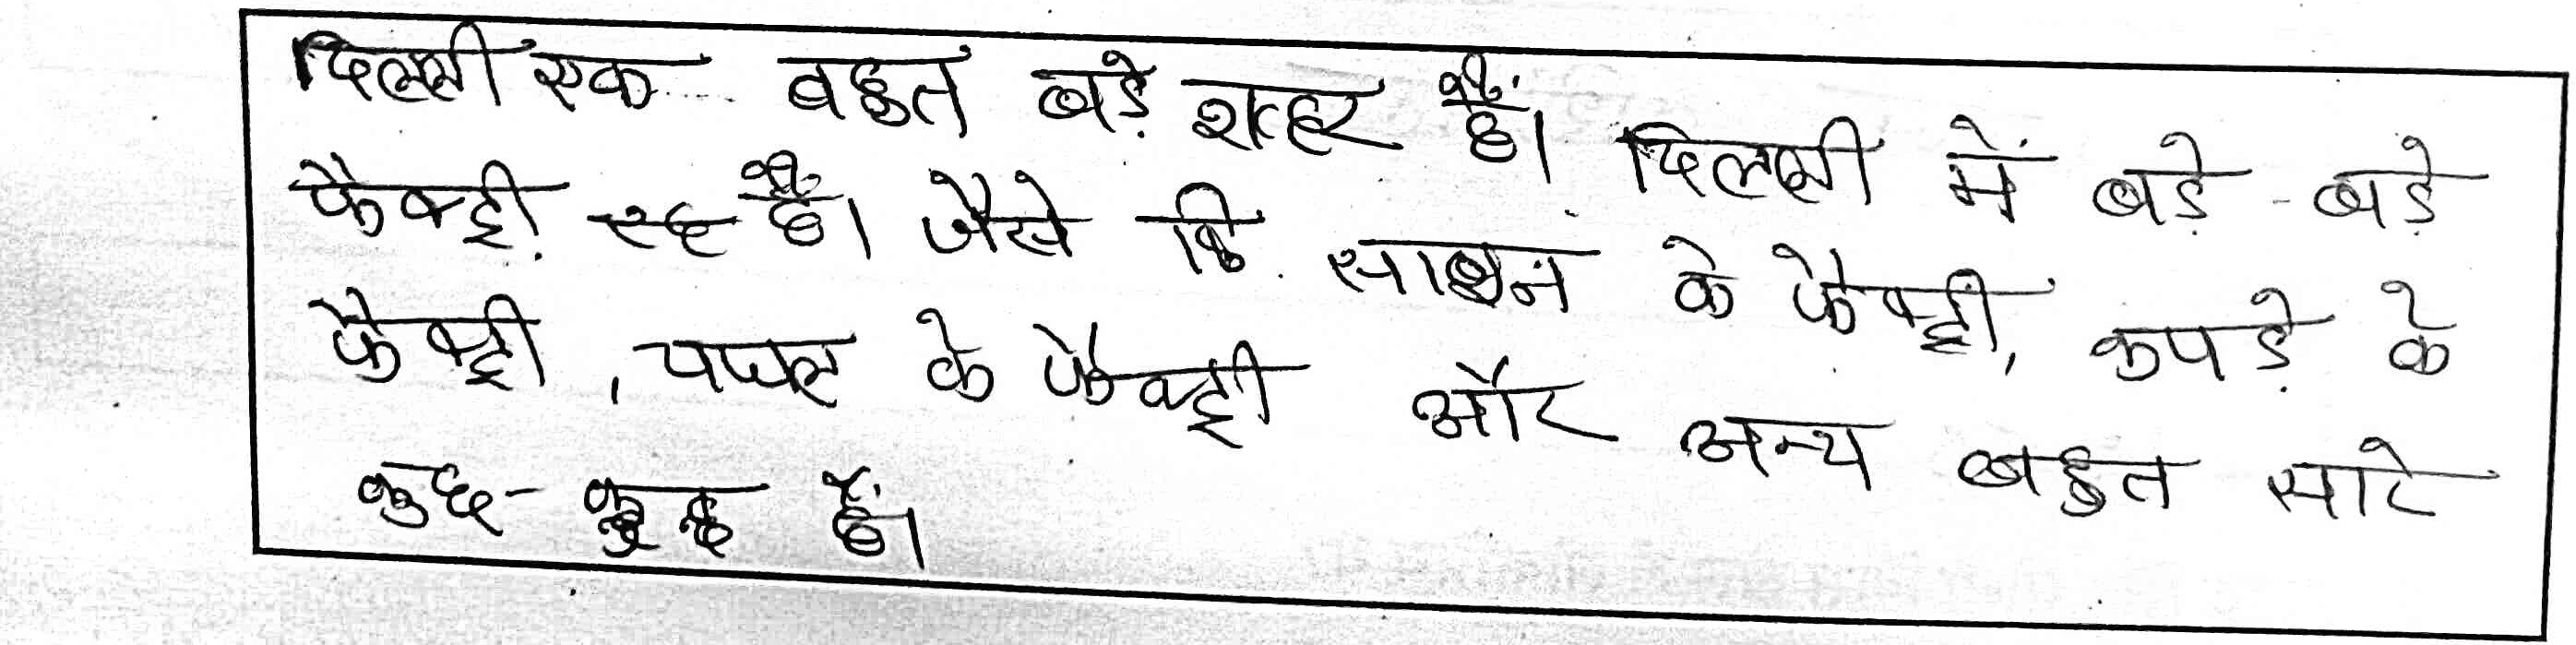 दिल्ली एक बहुत बड़े शहर हैं। दिल्ली में बड़े-बड़े
फैक्ट्री हैं। जैसे कि साबुन के फैक्ट्री, कपड़े के
फैक्ट्री, चप्पल के फैक्ट्री और अन्य बहुत सारे
कुछ-कुछ हैं।